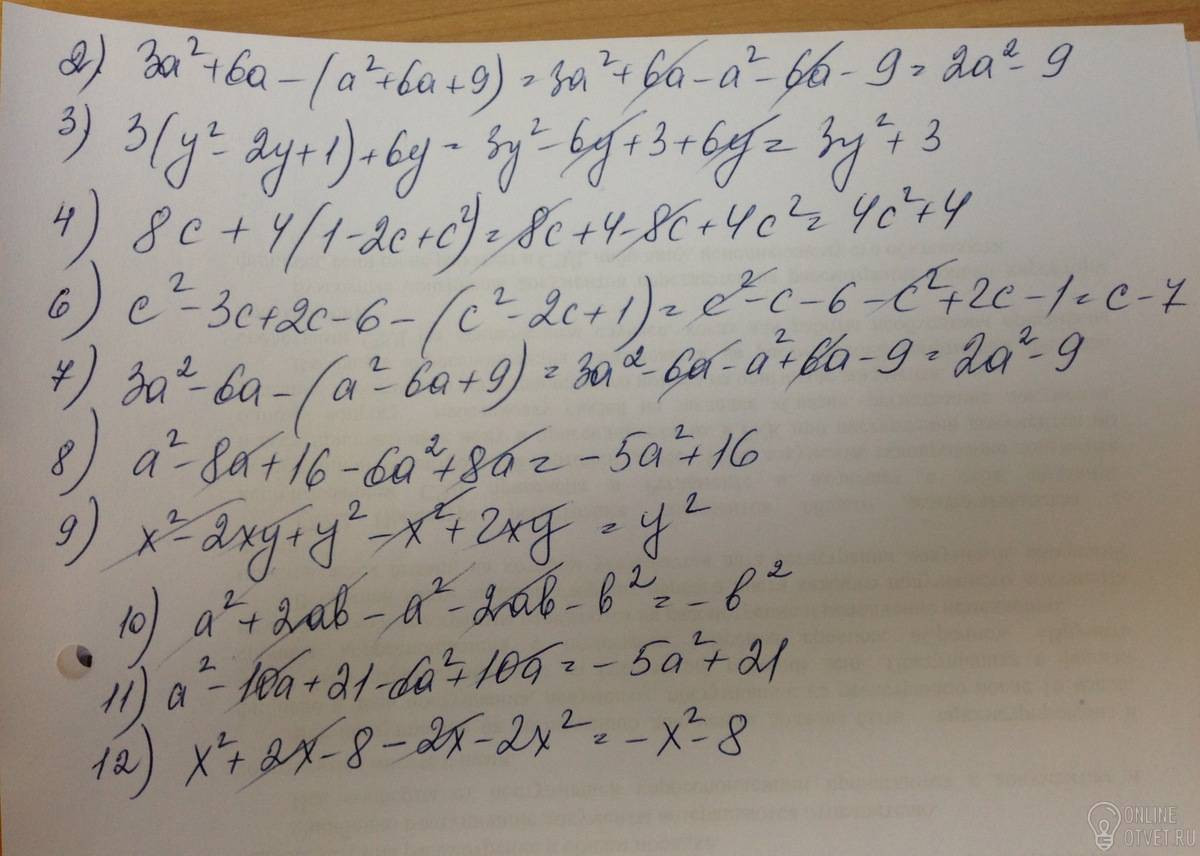 2) 3a²+6a-(a²+6a+9)=3a²+6a-a²-6a-9=2a²-9
3) 3(y²-2y+1)+6y=3y²-6y+3+6y=3y²+3
4) 8c+4(1-2c+c²)=8c+4-8c+4c²=4c²+4
6) c²-3c+2c-6-(c²-2c+1)=c²-c-6-c²+2c-1=c-7
7) 3a²-6a-(a²-6a+9)=3a²-6a-a²+6a-9=2a²-9
8) a²-8a+16-6a²+8a=-5a²+16
9) x²-2xy+y²-x²+2xy=y²
10) a²+2ab-a²-2ab-b²=-b²
11) a²-10a+21-6a²+10a=-5a²+21
12) x²+2x-8-2x-2x²=-x²-8
ONLINE
OTVET.RU